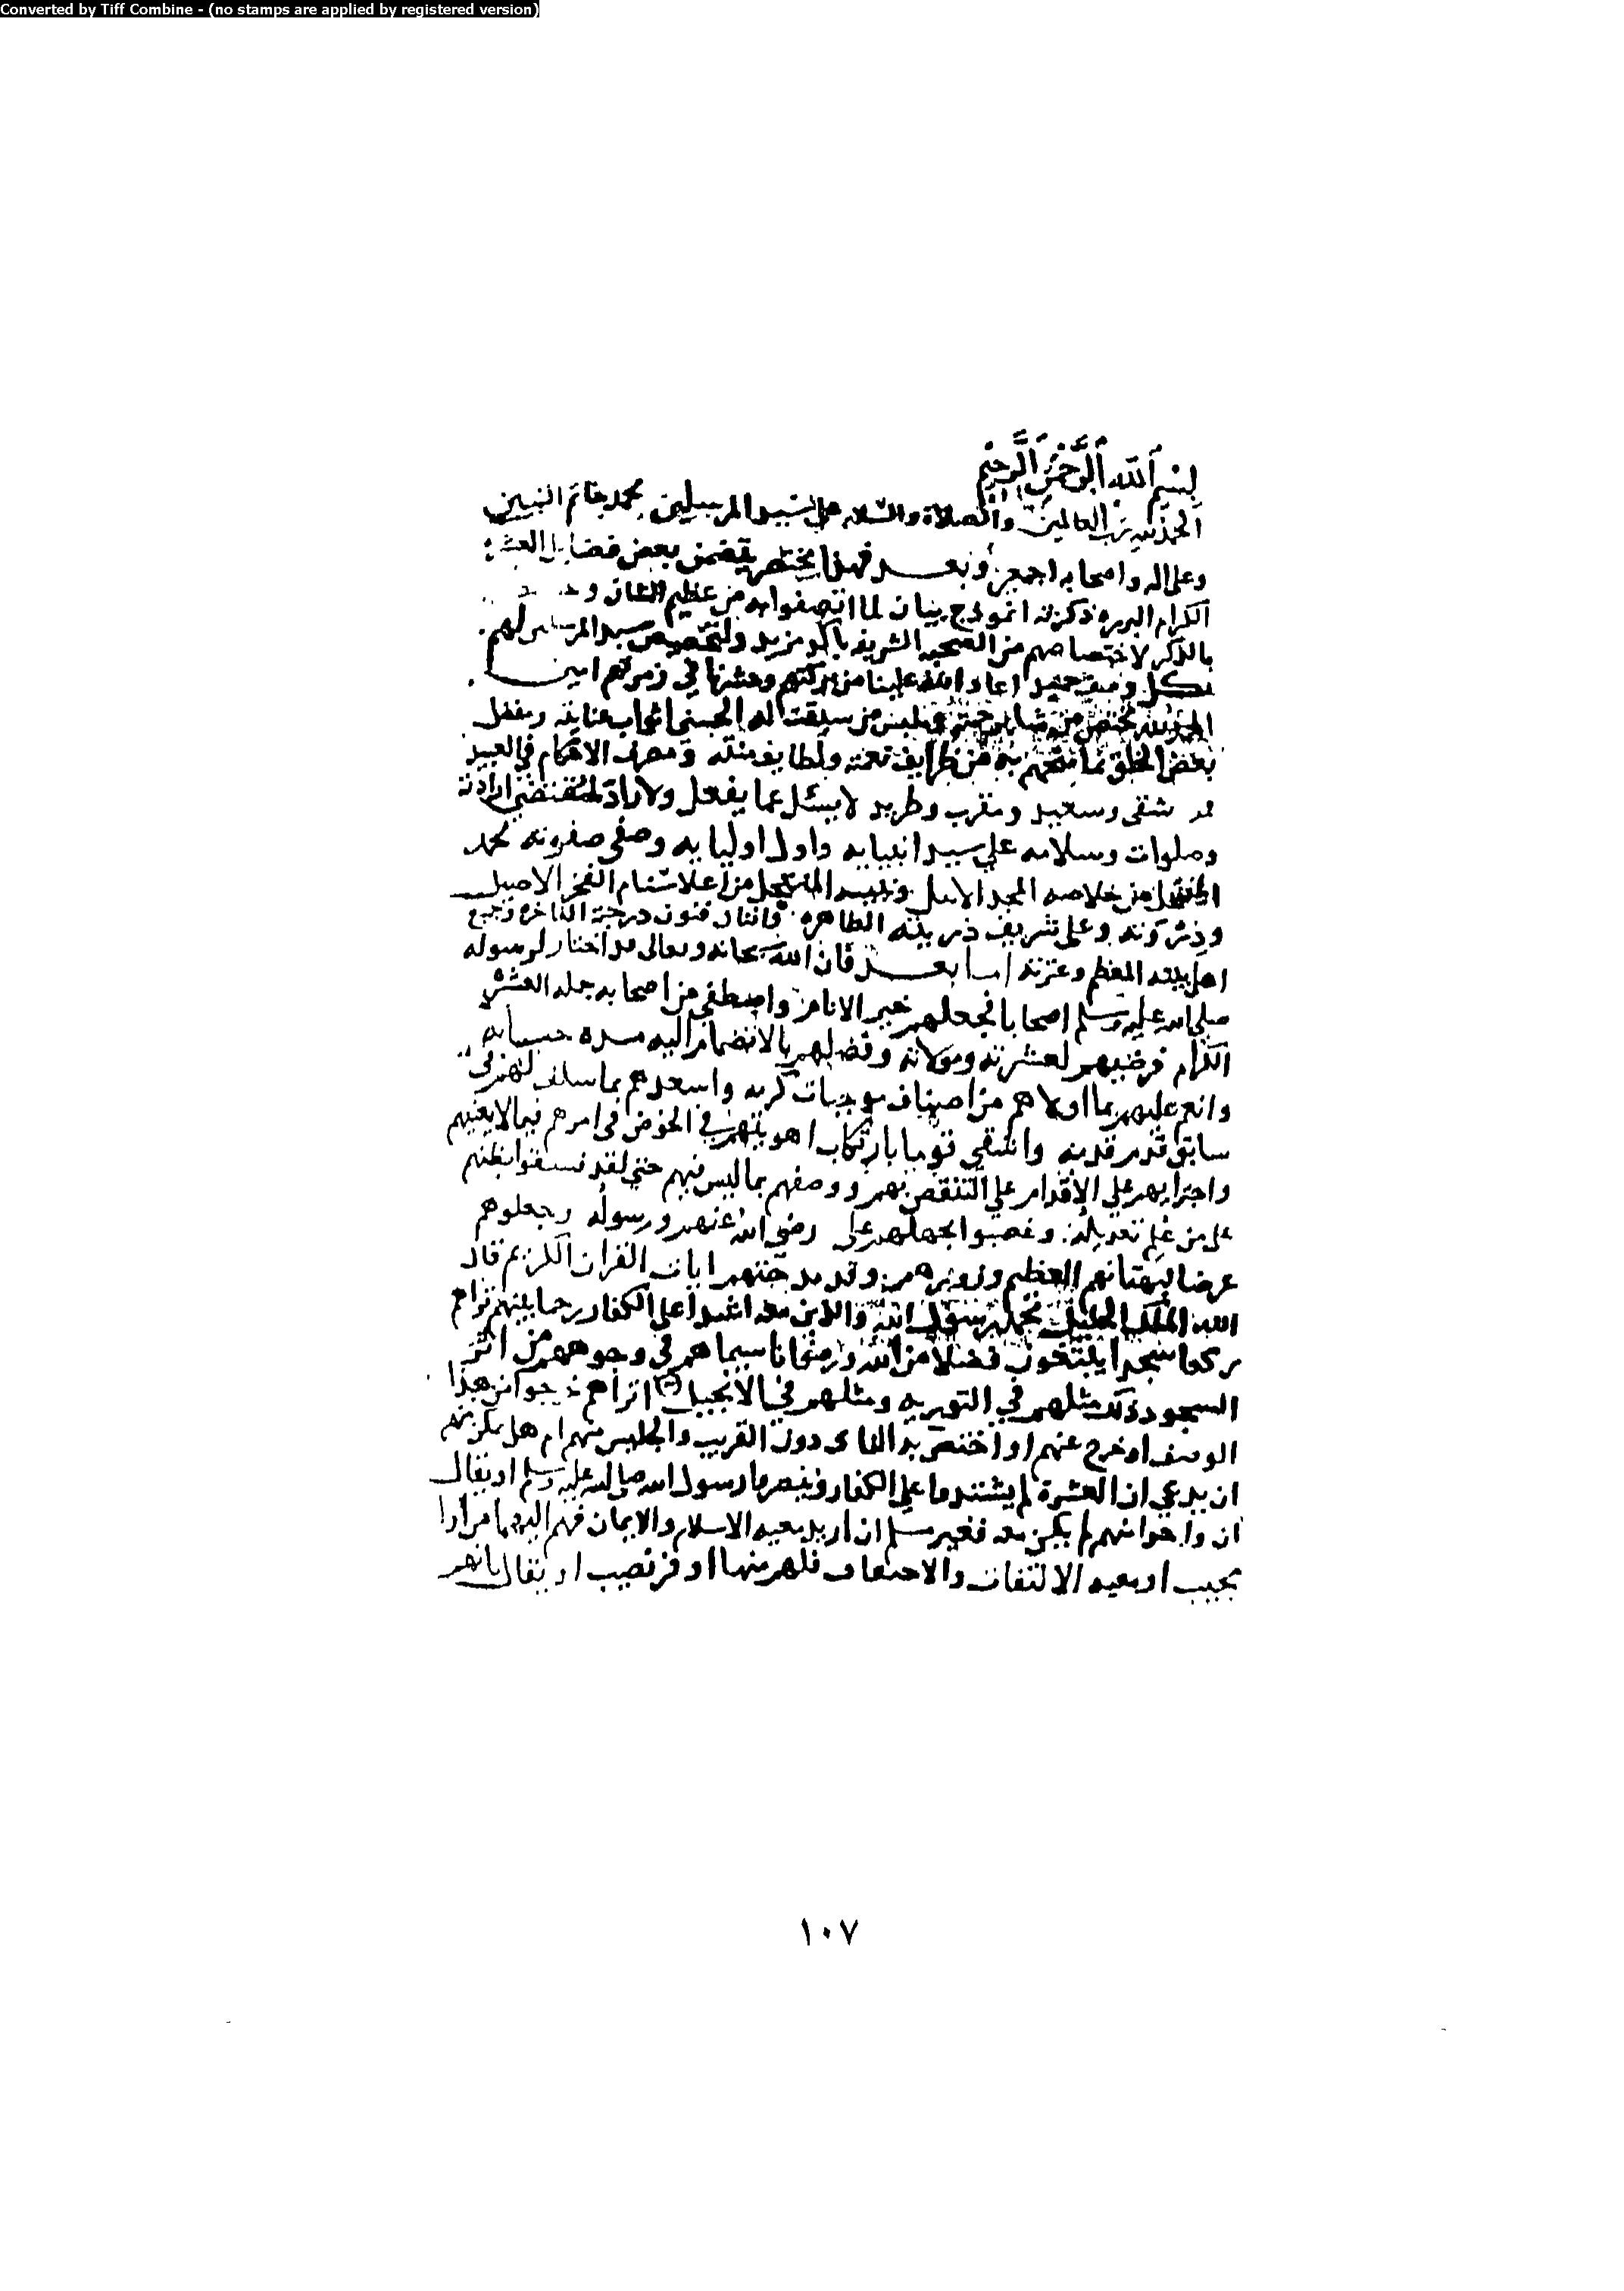 Converted by Tiff Combine - (no stamps are applied by registered version)
بِسْمِ اللَّهِ الرَّحْمَنِ الرَّحِيْمِ
الحمد لله رب العالمين والصلاة والسلام على سيد المرسلين محمد خاتم النبيين
وعلى اله واصحابه اجمعين وبعد فهذا مختصر يتضمن بعض فضايل العشرة
الكرام البرره ذكرته انموذج بيان لما اتصفوا به من عظيم الشان
بالذكر لاختصاصهم من الصحبه الشريفه باكد مزيد ولتخصيص سيد المرسلين لهم
بكل وصف حميد اعاد الله علينا من بركتهم وحشرنا في زمرتهم امين
الحمد لله مختص من شا برحمته وملبس من سبقت له الحسنى اثواب عنايته ومفضل
بعض الخلق بما منحهم به من طرايف نعمته ولطايف منته ومصرف الاحكام في العبيد
شقى وسعيد ومقرب وطريد لا يسئل عما يفعل ولا راد لمقتضى ارادته
وصلوات وسلامه علي سيد انبيايه واول اوليايه وصفى صفوته محمد
من خلاصه المجد الاثيل من اعلا سنام الفخر الاصيل
وعلى شريف ذريته الطاهره درجته الفاخره وجميع
اهل بيته المعظم وعترته اما بعد فان الله سبحانه وتعالى قد اختار لرسوله
صلى الله عليه وسلم اصحابا فجعلهم خير الانام واصطفى من اصحابه جمله العشره
الكرام فرضيهم لعشرته وموالاته وفضلهم بالانضمام اليه مده حياته
وانعم عليهم بما اولاهم من اصناف موجبات كرمه واسعدهم بما سلف لهم في
سابق قدم قدمه واشقي قوما بارتكاب اهويتهم في الخوض في امرهم فيما لا يعنيهم
واجترايهم علي الاقدام علي التنقص بهم ووصفهم بما ليس فيهم حتى لقد نسفوا بظنهم
على من علم تعديله وغصبوا بجهلهم على رضى الله عنهم ورسوله وجعلوهم
عرضا لبهتانهم العظيم وزورهم ايات القران الكريم قال
الله الملك الجليل محمد رسول الله والذين معه اشدا على الكفار رحما بينهم تراهم
ركعا سجدا يبتغون فضلا من الله ورضوانا سيماهم في وجوههم من اثر
السجود ذلك مثلهم في التوريه ومثلهم في الانجيل اتراهم خرجوا من هذا
الوصف او خرج عنهم او اختص به الناى دون القريب والجليس منهم ام هل يمكن منهم
ان يدعي ان العشرة لم يشتدوا علي الكفار وينصروا رسول الله صلى الله عليه وسلم او يقال
ان واحدا منهم لم يكن معه فغير مسلم ان اريد معيه الاسلام والايمان فهم اليه
او معيه الالتفات والاحتفاف فلهم منها اوفر نصيب او يقال بانهم
١٠٧